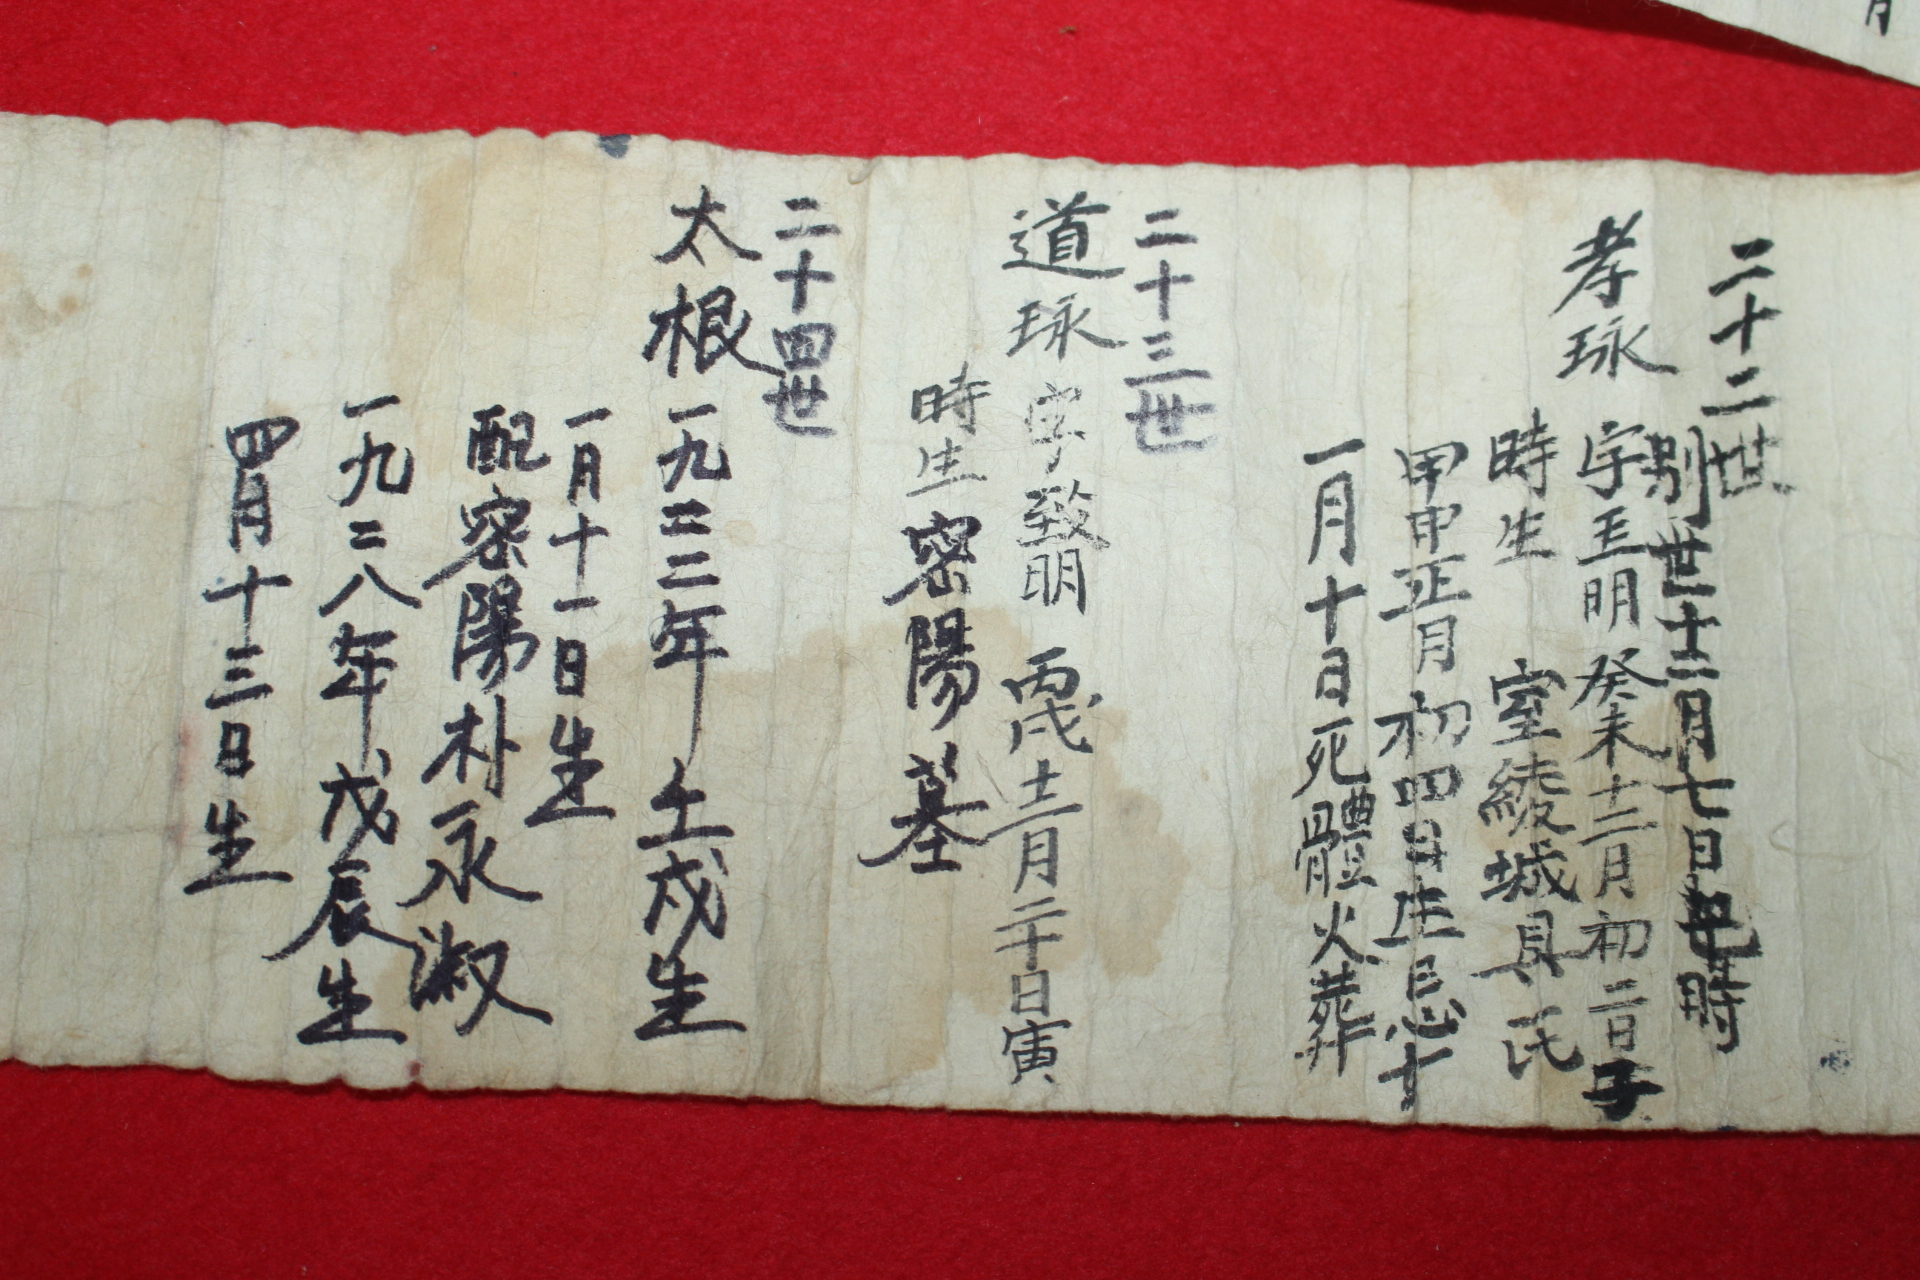 二十二世
別世十二月七日亀時
孝琜 字玉明 癸未十二月初二日子
時生 室綾城具氏
甲申正月初四日生忌十
一月十日死體火葬
二十三世
道琜 字致明 丙戌十二月二十日寅
時生 密陽墓
二十四世
太根 一九二二年 士戌生
一月十一日生
配密陽朴永淑
一九二八年戊辰生
四月十三日生
月